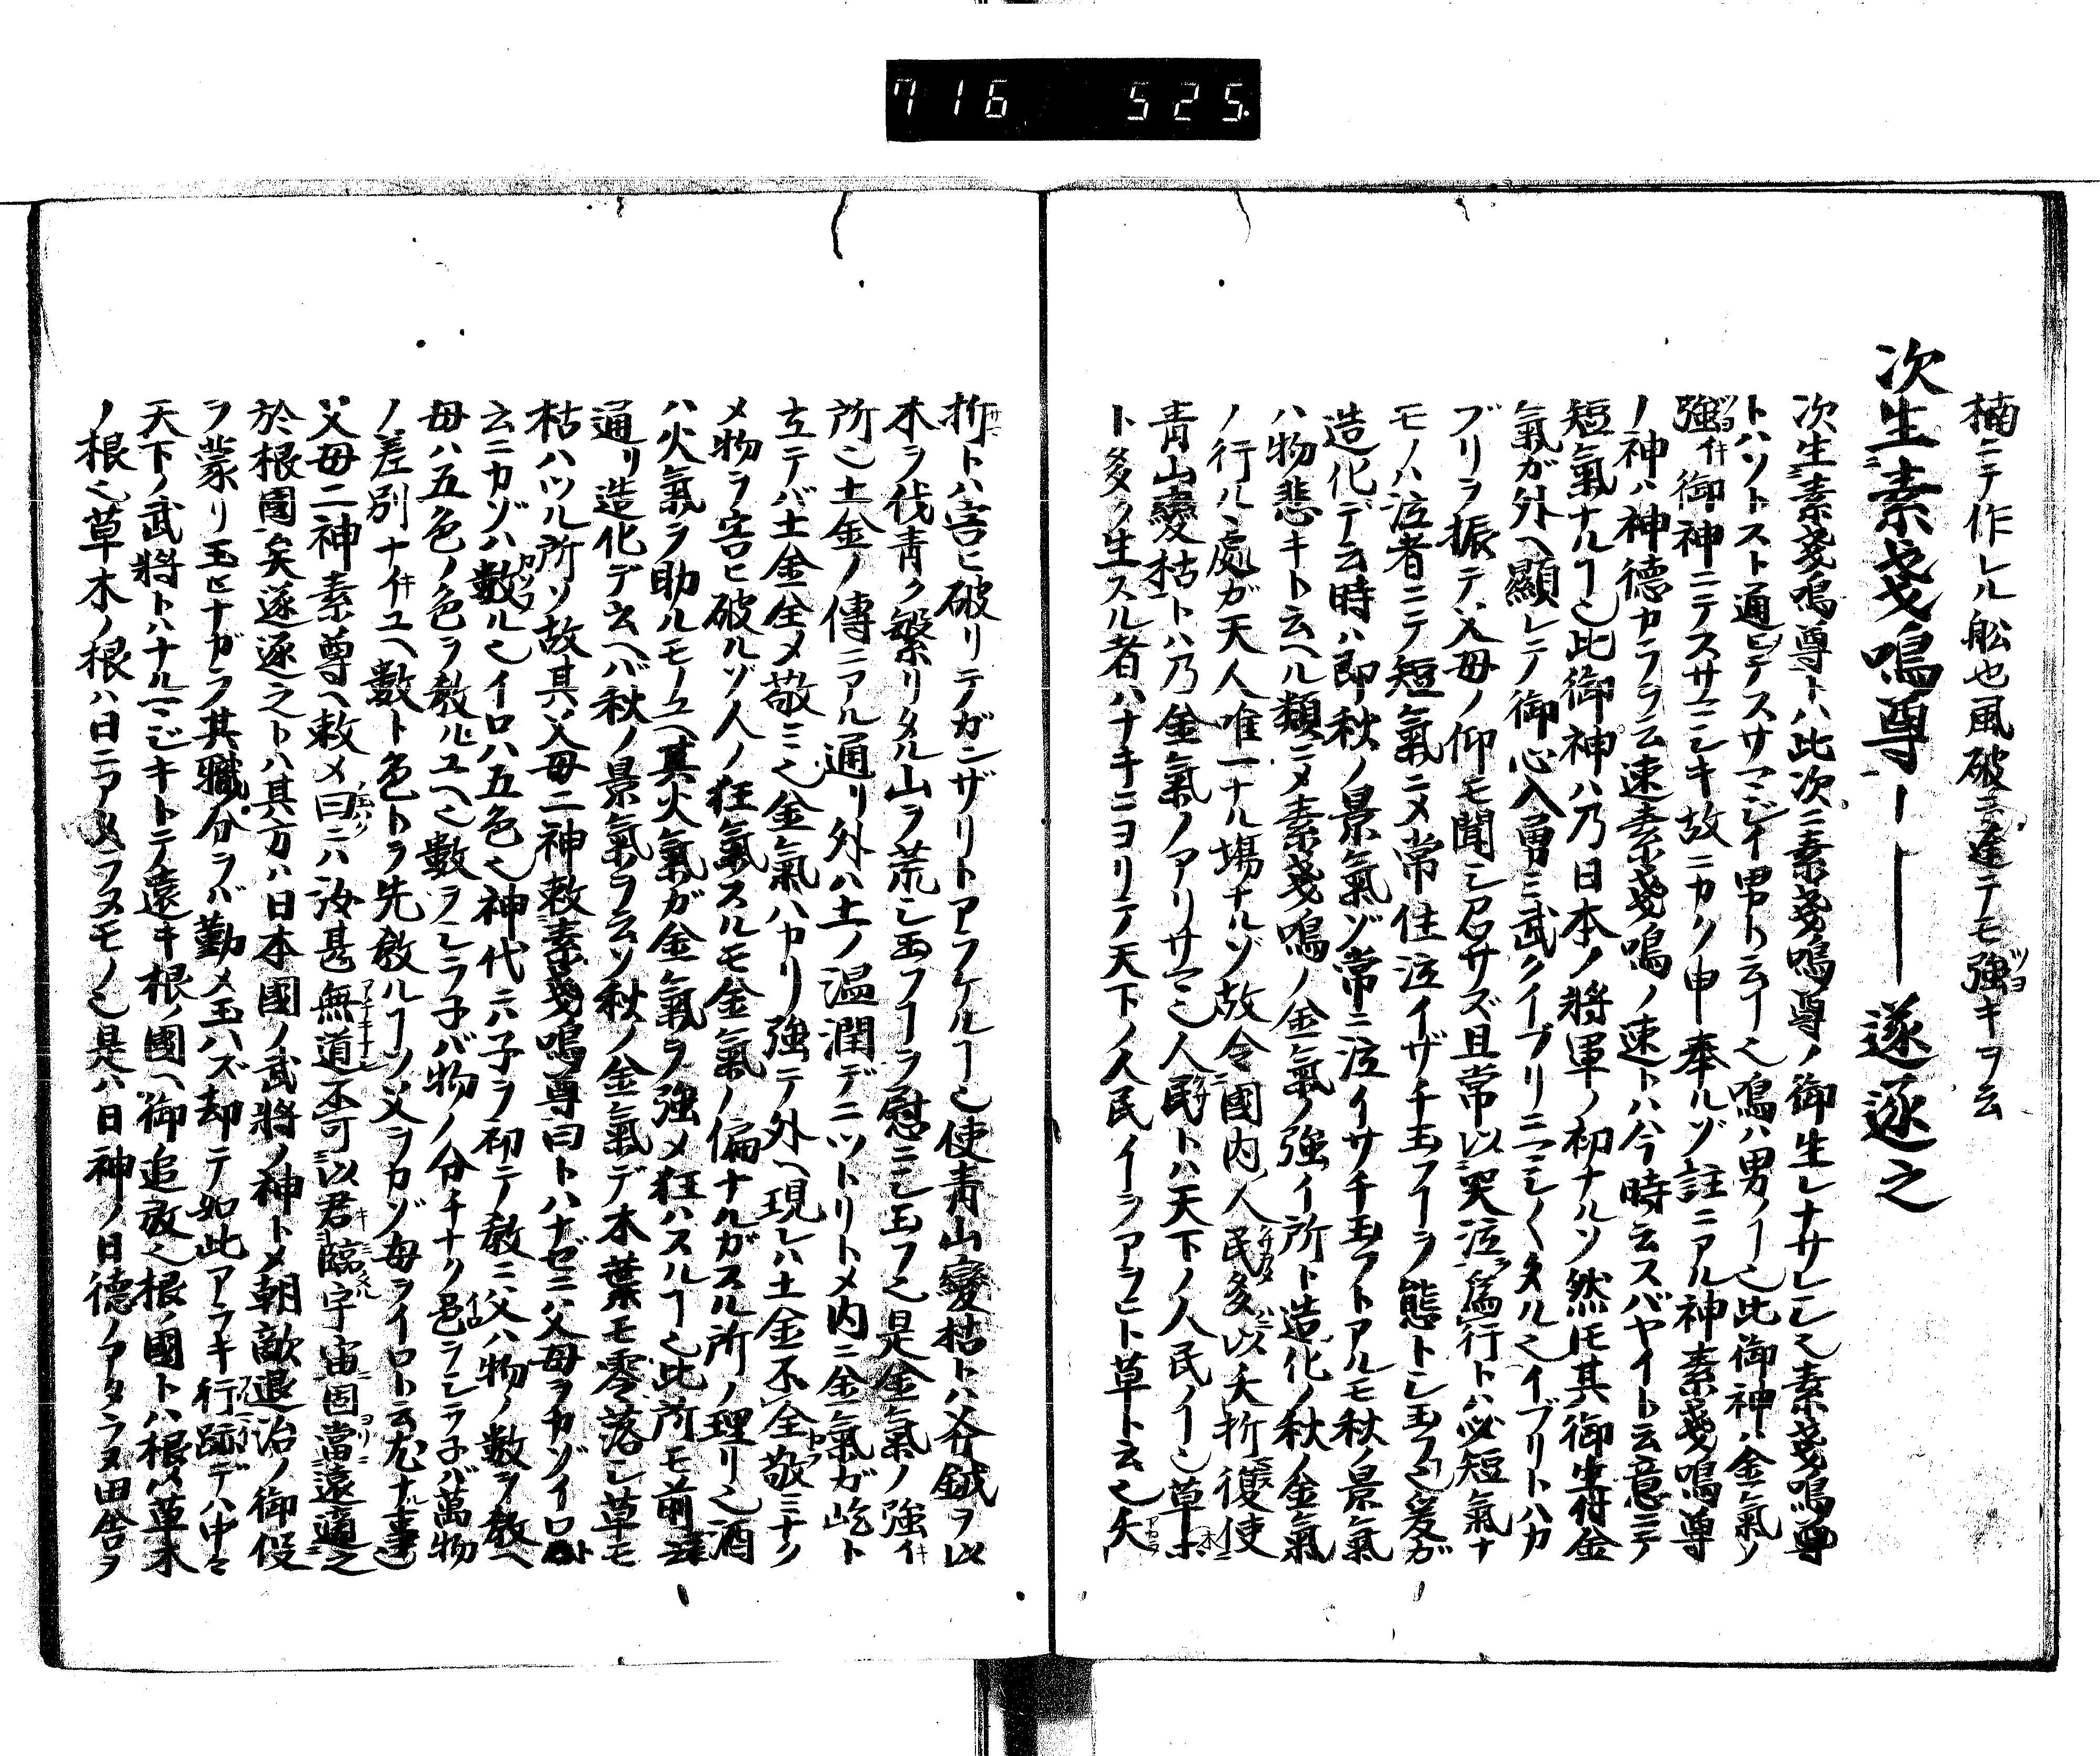 716 525
楠ニテ作レル舩也風破ニ逢テモ強キヲ云
次生素戔嗚尊ーーー遂逐之
次生素戔嗚尊トハ此次ニ素戔嗚尊ノ御生レナサレ素戔嗚尊
トハソトスト通ヒテスサマジイ男ト云フ嗚ハ男ノ此御神ハ金氣ノ
強イ御神ニテスサマシキ故ニカク申奉ルゾ註ニアル神素戔嗚尊
ノ神ハ神德カラ云速素戔嗚ノ速トハ今時云スバヤイト云意ニテ
短氣ナル此御神ハ乃日本ノ將軍ノ初ナルソ然圧其御生付金
氣ガ外ヘ顯レテノ御心入勇ミ武クイブリニマシ〱タル也イブリトハカ
ブリヲ振テ父母ノ仰モ聞シ召サズ且常以哭泣爲行トハ必短氣ナ
モノハ泣者ニテ短氣ニメ常住泣イザチ玉フ態トシ玉フ爰ガ
造化デ云時ハ即秋ノ景氣ゾ常ニ泣イサチ玉フトアルモ秋ノ景氣
ハ物悲キト云ヘル類ニメ素戔嗚ノ金氣ノ強イ所ト造化ノ秋ノ金氣
ノ行ル處ガ天人唯一ナル場ナルゾ故令國內人民多以夭折復使
青山變枯トハ乃金氣ノアリサマ也人民トハ天下ノ人民ノ也草木
ト多ク生スル者ハナキニヨリテ天下ノ人民イーラアラ草ト云也夭
折トハ害ヒ破リテガンザリトアラケル也使青山變枯トハ斧鉞ヲ以
木ヲ伐青ク繁リタル山ヲ荒シ玉フヲ慰ニシ玉フ也是金氣ノ強イ
所也土金ノ傳ニアル通リ外ハ土ノ温潤デニツトリトメ內ニ金氣ガ屹ト
立テバ土金全メ敬ミ也金氣ハカリ強テ外ヘ現レハ土金不全敬ミナク
メ物ヲ害ヒ破ルゾ人ノ狂氣スルモ金氣ノ偏ナルガスル所ノ理リ也酒
ハ火氣ヲ助ルモノユヘ其火氣ガ金氣ヲ強メ狂ハスル也此所モ前
通リ造化デ云ヘバ秋ノ景氣ヲ云ソ秋ノ金氣デ木葉モ零落シ草モ
枯ハツル所ソ故其父母二神敕素戔嗚尊曰トハナゼニ父母ヲカゾイロト
云ニカゾハ數ル也イロハ五色也神代ニハ子ヲ初テ敎ニ父ハ物ノ數ヲ敎ヘ
母ハ五色ノ色ヲ敎ルユヘ也數ヲシラ子バ物ノ分チナク色ヲシラ子バ萬物
ノ差別ナイユヘ數ト色トヲ先敎ルソ父ヲカゾ母ヲイロト云尤ナル
父母二神素尊ヘ敕メ曰ニハ汝甚無道不可以君臨宇宙固當遠適之
於根國矣遂逐之トハ其方ハ日本國ノ武將ノ神トメ朝敵退治ノ御役
ヲ蒙リ玉ヒナガラ其職分ヲバ勤メ玉ハズ却テ如此アラキ行跡デハ中々
天下ノ武將トハナルマジキトテノ遠キ根ノ國ヘ御追放也根ノ國トハ根ハ草木
ノ根也草木ノ根ハ日ニアハヌモノ也是ハ日神ノ日德ノアタラヌ田舎ヲ